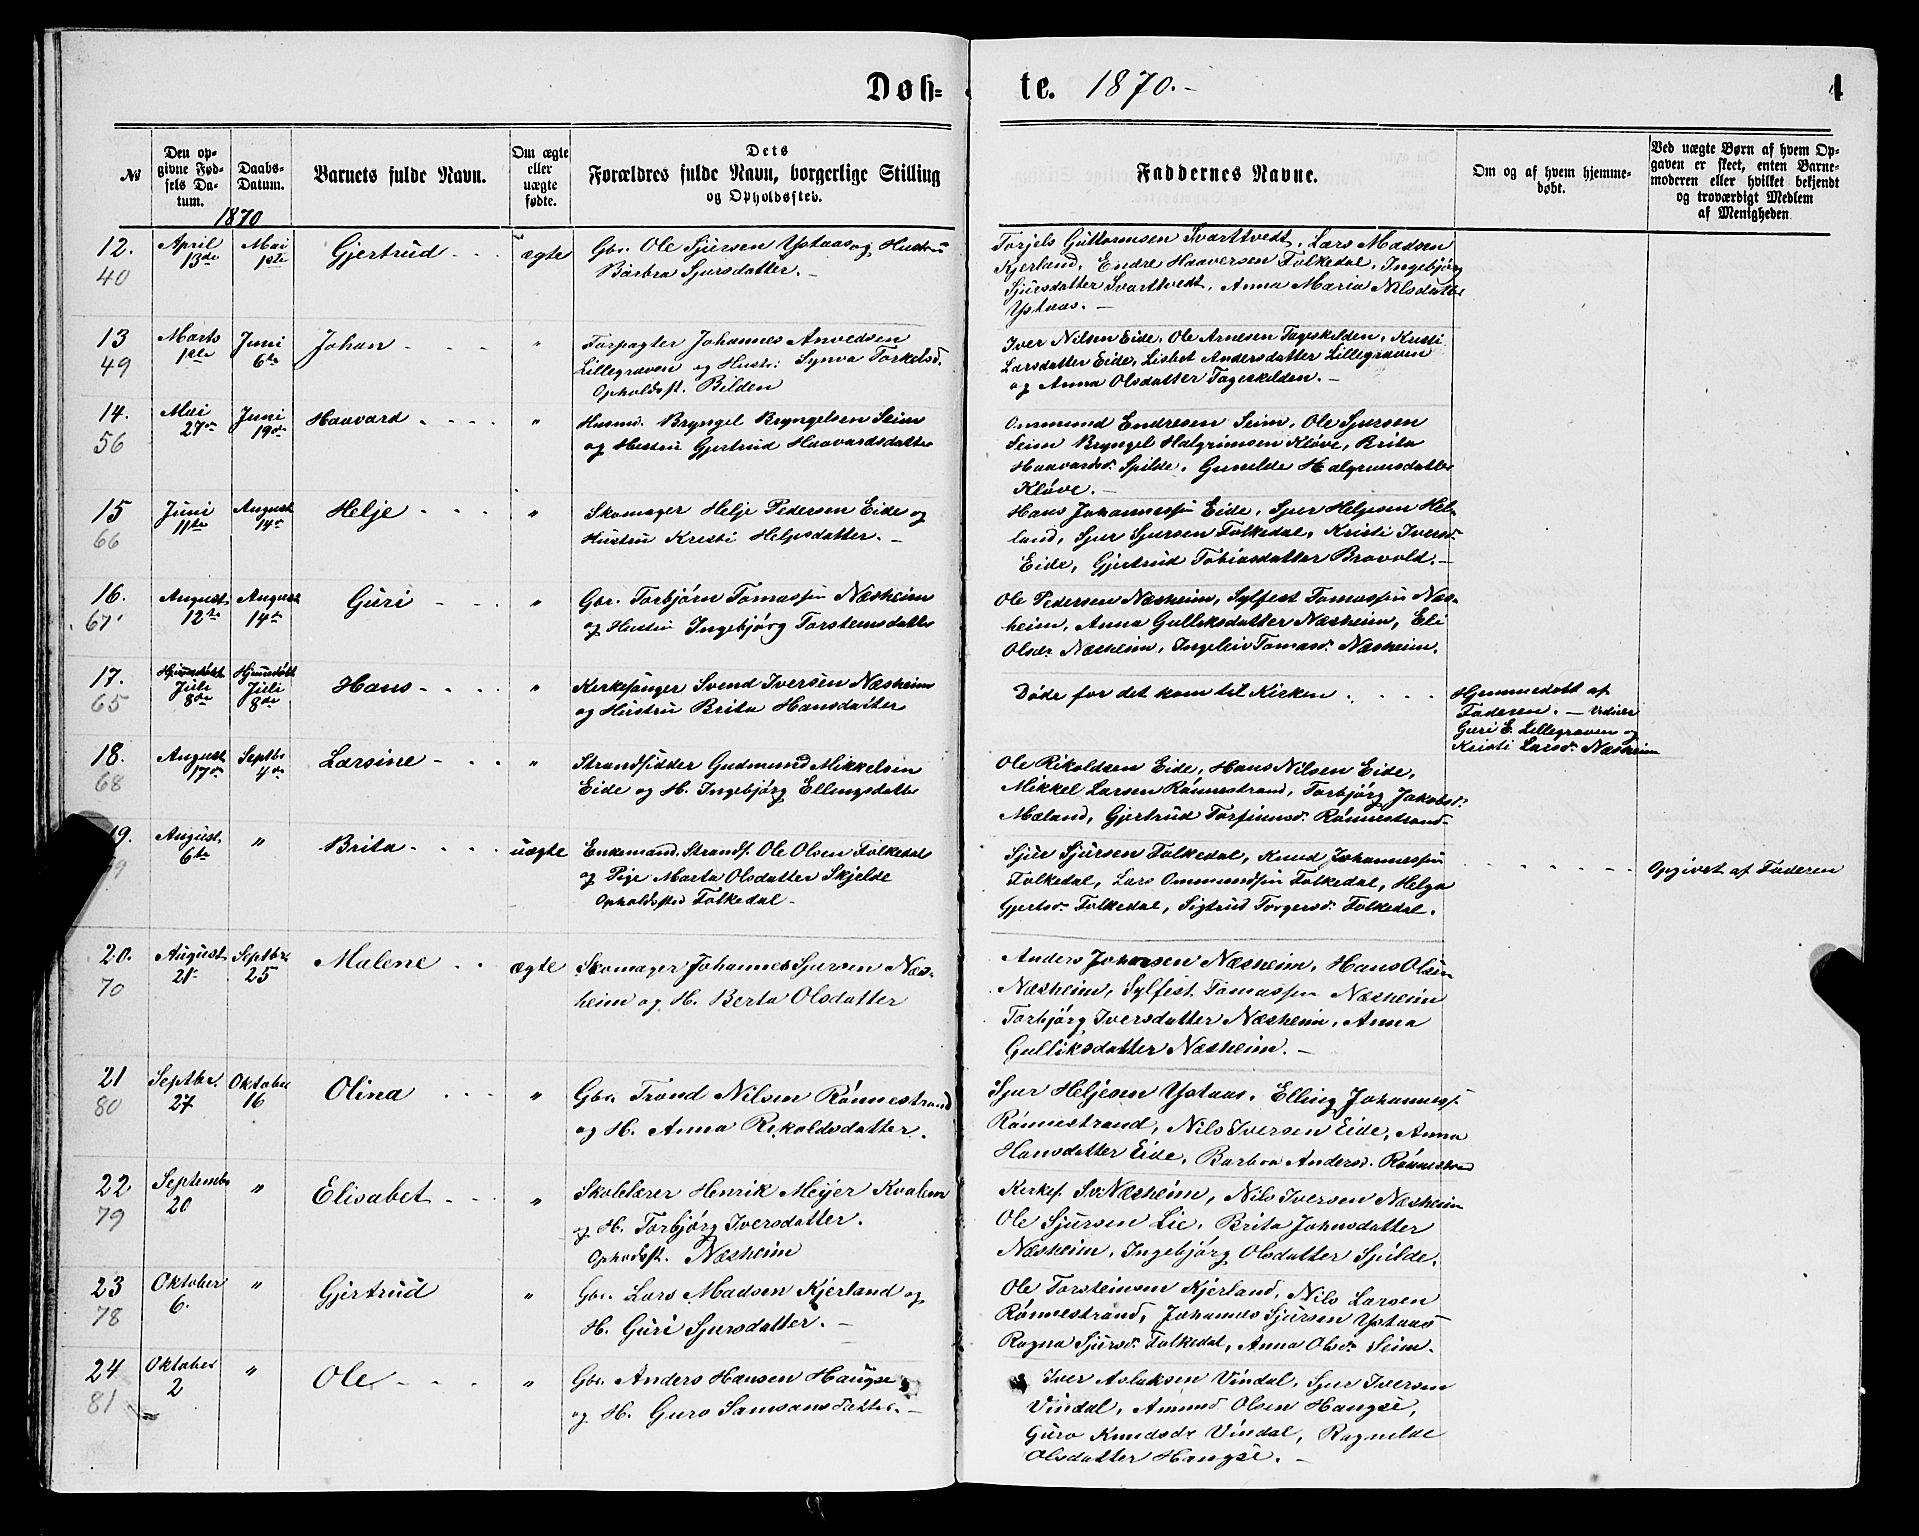 Døb-
te. 1870.-
4
№
Den opgivne Fødsels Datum.
Daabs-Datum.
Barnets fulde Navn.
Om ægte eller uægte fødte.
Dets Forældres fulde Navn, borgerlige Stilling og Opholdssted.
Faddernes Navne.
Om og af hvem hjemmedøbt.
Ved uægte Børn af hvem Opgaven er skeet, enten Barnemoderen eller hvilket bekjendt og troværdigt Medlem af Menigheden
1870
12.
40
April 13de
Mai 1ste
Gjertrud
ægte
Gbr. Ole Sjursen Ystaas og Hustru
Barbra Sjursdatter. -
Torjels Guttormsen Svarttvedt, Lars Madsen
Kjerland, Endre Haaversen Folkedal, Ingebjørg
Sjursdatter Svarttvedt, Anna Maria Nilsdatter
Ystaas. -
13
49
Marts 1ste
Juni 6te
Johan
"
Forpagter Johannes Anvedsen
Lillegraven og Hustr: Synva Torkelsd.
Opholdsst. Bilden
Iver Nilsen Eide, Ole Arnesen Tageskilden, Kristi
Larsdatter Eide, Lisbet Andersdatter Lillegraven
og Anna Olsdatter Tageskilden. -
14.
56
Mai 27de
Juni 19de
Haavard
"
Husmd. Bryngel Bryngelsen Seim
og Hustru Gjertrud Haavardsdatter
Ommund Endresen Seim, Ole Sjursen
Seim Bryngel Halgrimsen Kløve, Brita
Haavardsdr. Spilde, Gunilde Halgrimsdatter
Kløve. -
15
66
Juni 11te
August 14de
Helje
"
Skomager Helje Pedersen Eide og
Hustru Kristi Heljesdatter. -
Hans Johannessen Eide, Sjur Heljesen Hel-
land, Sjur Sjursen Folkedal, Kristi Iversd.
Eide, Gjertrud Tobiasdatter Bravold. -
16.
67
August 12te
August 14de
Guri
"
Gbr. Torbjørn Tomassen Næsheim
og Hustru Ingebjørg Torsteinsdatter
Ole Pedersen Næsheim, Sylfest Tomassen Næs-
heim, Anna Gulliksdatter Næsheim, Eli
Olsdr. Næsheim, Ingeleiv Tomasd. Næsheim.
17.
65
Juli 8de
Hjemdøbt Juli 8de
Hans
"
Kirkesanger Svend Iversen Næsheim
og Hustru Brita Hansdatter
Døde før det kom til Kirken.
Hjemmedøbt af
Faderen. - Vidner
Guri E. Lillegraven og
Kristi Larsd. Næsheim
18.
68
August 17de
Septbr 4de
Larsine
"
Strandsidder Gudmund Mikkelsen
Eide og H. Ingebjørg Ellingsdatter
Ole Rikoldsen Eide, Hans Nilsen Eide,
Mikkel Larsen Rønnestrand, Torbjørg Jakobsd.
Mæland, Gjertrud Torfinnsd. Rønnestrand.
19.
August 6te
"
Brita
uægte
Enkemand. Strands. Ole Olsen Folkedal
og Pige Marta Olsdatter Skjelde
Opholdssted Folkedal -
Sjur Sjursen Folkedal, Knud Johannessen
Folkedal, Lars Ommundsen Folkedal, Helga
Gjertsd. Folkedal, Sigtrud Torgersd. Folkedal.
Opgivet af Faderen
20.
70
August 21
Septbr. 25
Malene
ægte
Skomager Johannes Sjursen Næs-
heim og H. Berta Olsdatter
Anders Johansen Næsheim, Hans Olsen
Næsheim, Sylfest Tomassen Næsheim
Torbjørg Iversdatter Næsheim, Anna
Gulliksdatter Næsheim. -
21
80
Septbr. 27
Oktober 16
Olina
"
Gbr. Trond Nilsen Rønnestrand
og H. Anna Rikoldsdatter.
Sjur Heljesen Ystaas, Elling Johanness.
Rønnestrand, Nils Iversen Eide, Anna
Hansdatter Eide, Barbra Andersd. Rønnestrand
22
79
Septembr 20
"
Elisabet
"
Skolelærer Henrik Meyer Kvalem
og H. Torbjørg Iversdatter.
Opholdsst. Næsheim
Kirkes. Sv: Næsheim, Nils Iversen Næsheim
Ole Sjursen Lie, Brita Johnsdatter
Næsheim, Ingebjørg Olsdatter Spilde.
23
78
Oktober 6.
"
Gjertrud
"
Gbr. Lars Madsen Kjerland og
H. Guri Sjursdatter. -
Ole Torsteinsen Kjerland, Nils Larsen
Rønnestrand, Johannes Sjursen Ystaas
Ragna Sjursd. Folkedal, Anna Olsdr. Seim.
24
81
Oktober 2
"
Ole
"
Gbr. Anders Hansen Haugse
og H. Guro Samsonsdatter. -
Iver Aslaksen Vindal, Sjur Iversen
Vindal, Amund Olsen Haugse,
Guro Knudsdr Vindal, Ragnilde
Olsdatter Haugse. -